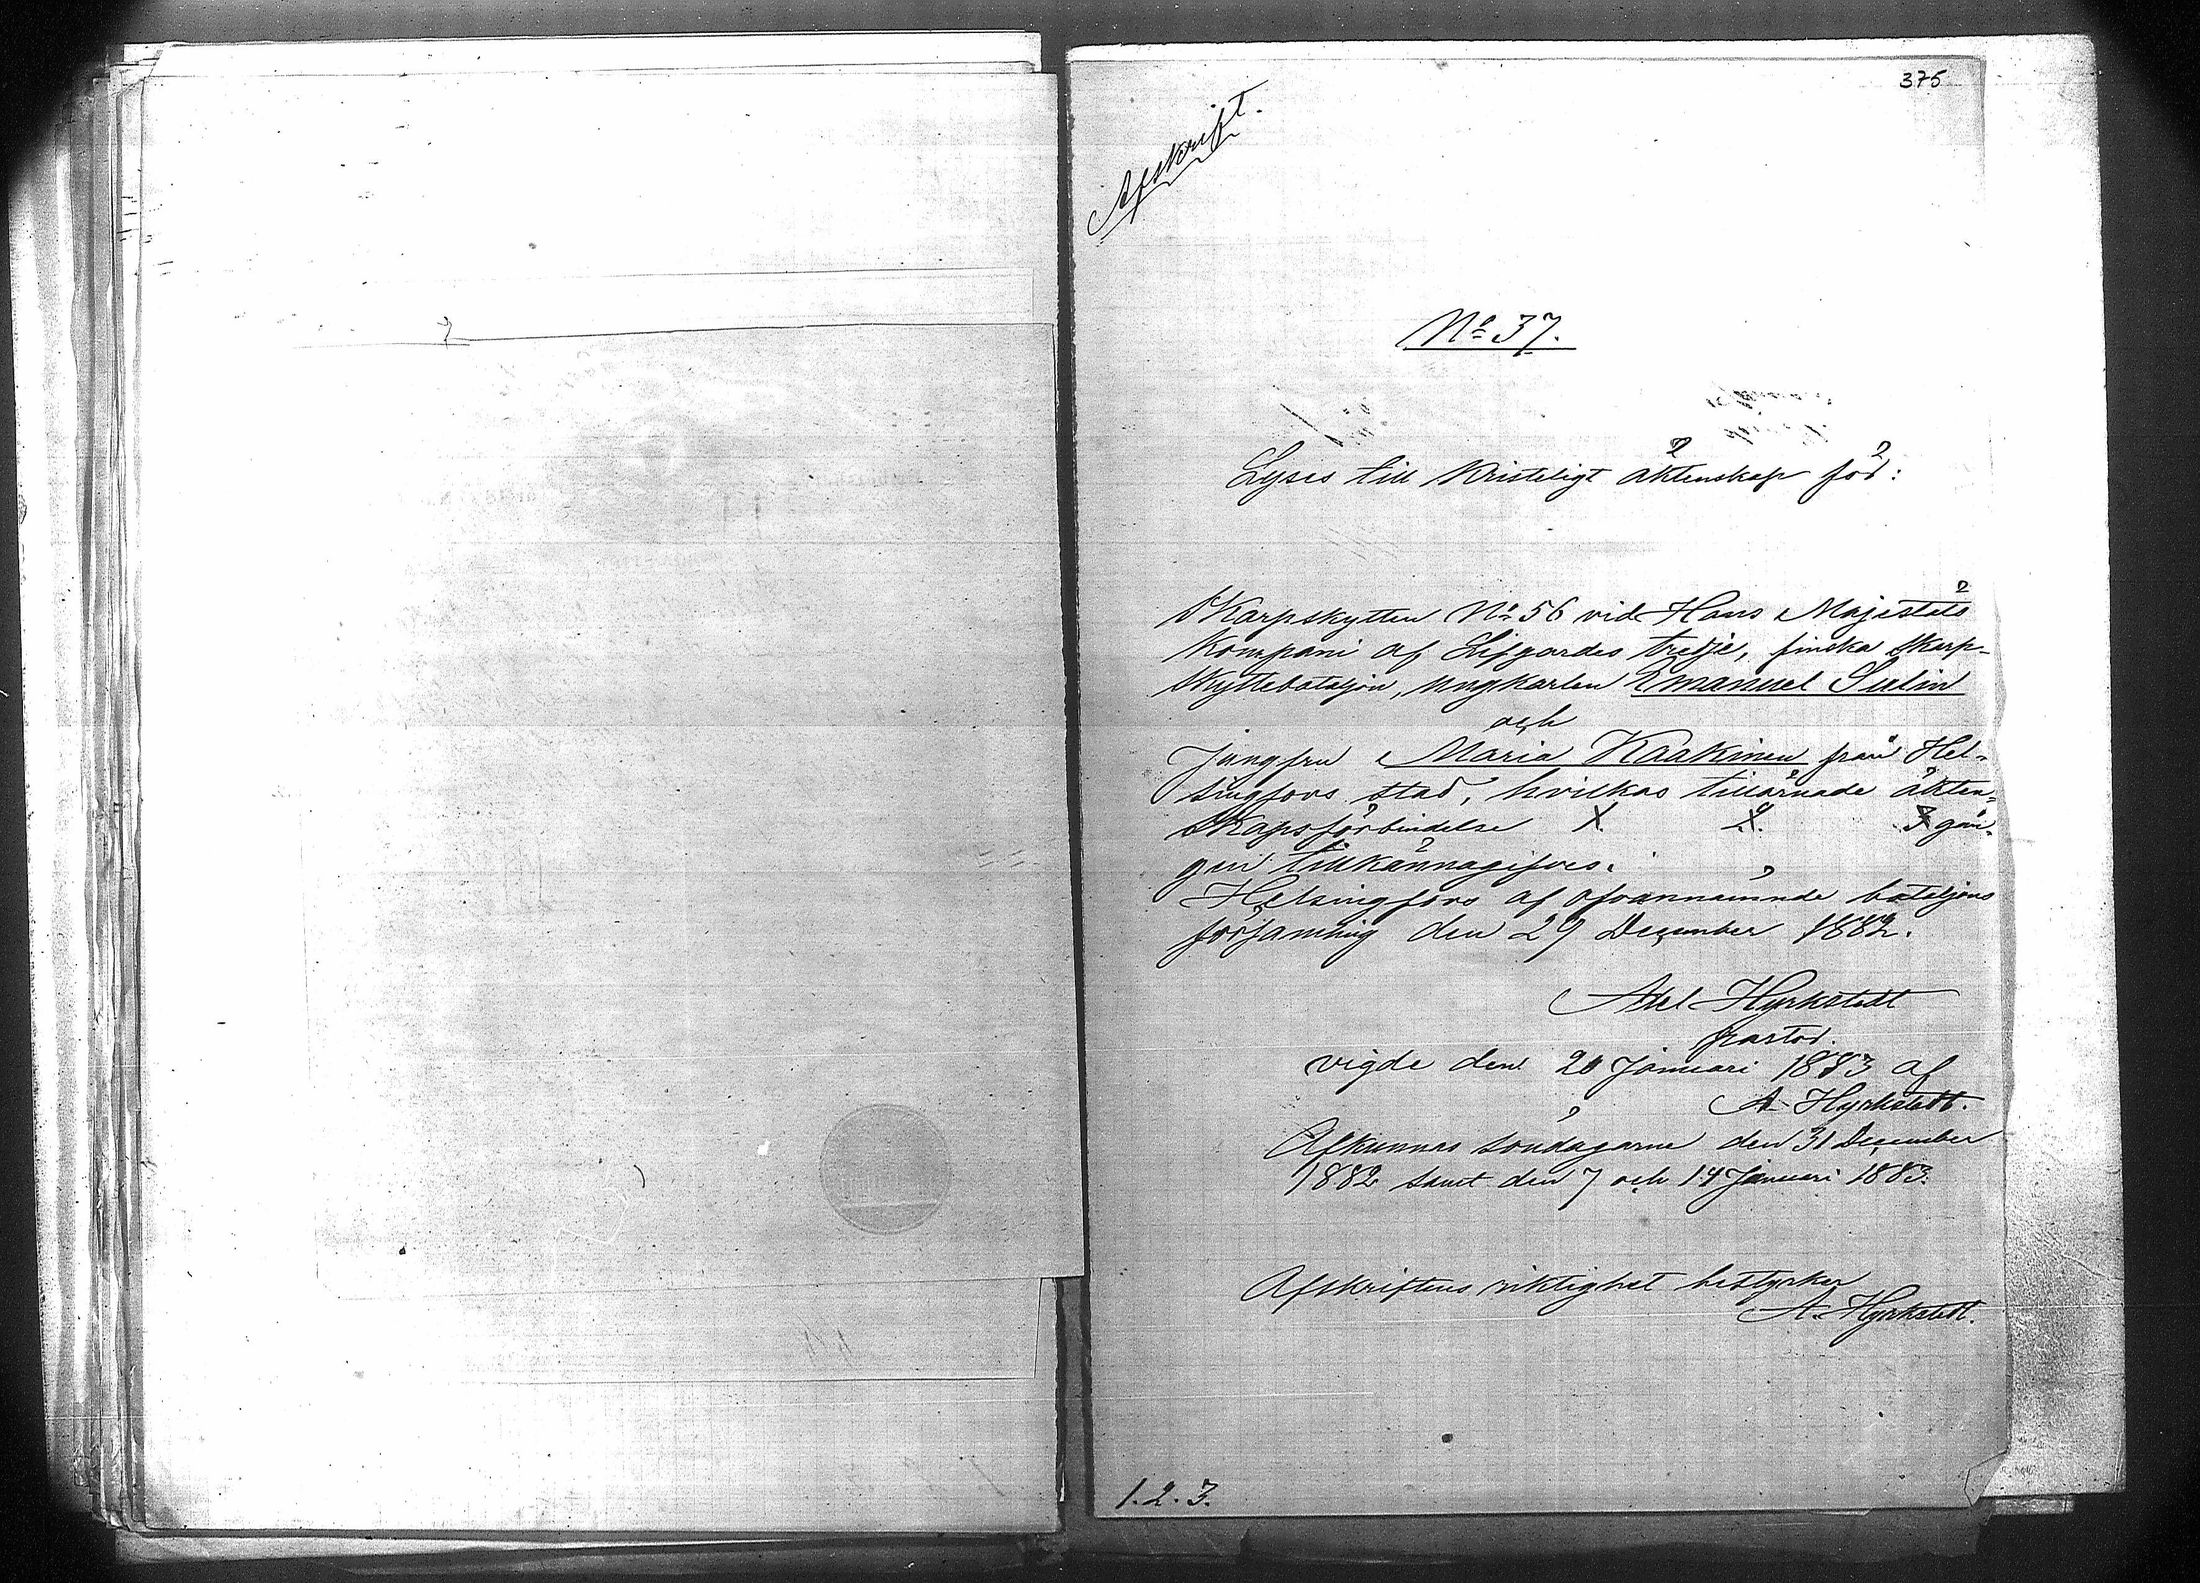 375
Afskrift.
No 37.
Lyses till kristeligt äktenskap för:
Skarpskytten No 56 vid Hans Majestäts
kompani af Lifgardes tredje, finska skarp-
skyttebataljon, ungkarlen Emanuel Sulin
och
jungfru Maria Kaakinen från Hel-
singfors stad, hvilkas tillärnade äkten-
skapsförbindelse 1. 2. 3 gån-
gen tillkännagifves.
Helsingfors af ofvannämnde bataljons
församling den 29 December 1882.
Axel Hyrkstedt
pastor.
vigde den 20 Januari 1883 af
A. Hyrkstedt.
Afkunnas söndagarne den 31 December
1882 samt den 7 och 14 Januari 1883.
Afskriftens riktighet bestyrker
A. Hyrkstedt.
1. 2. 3.